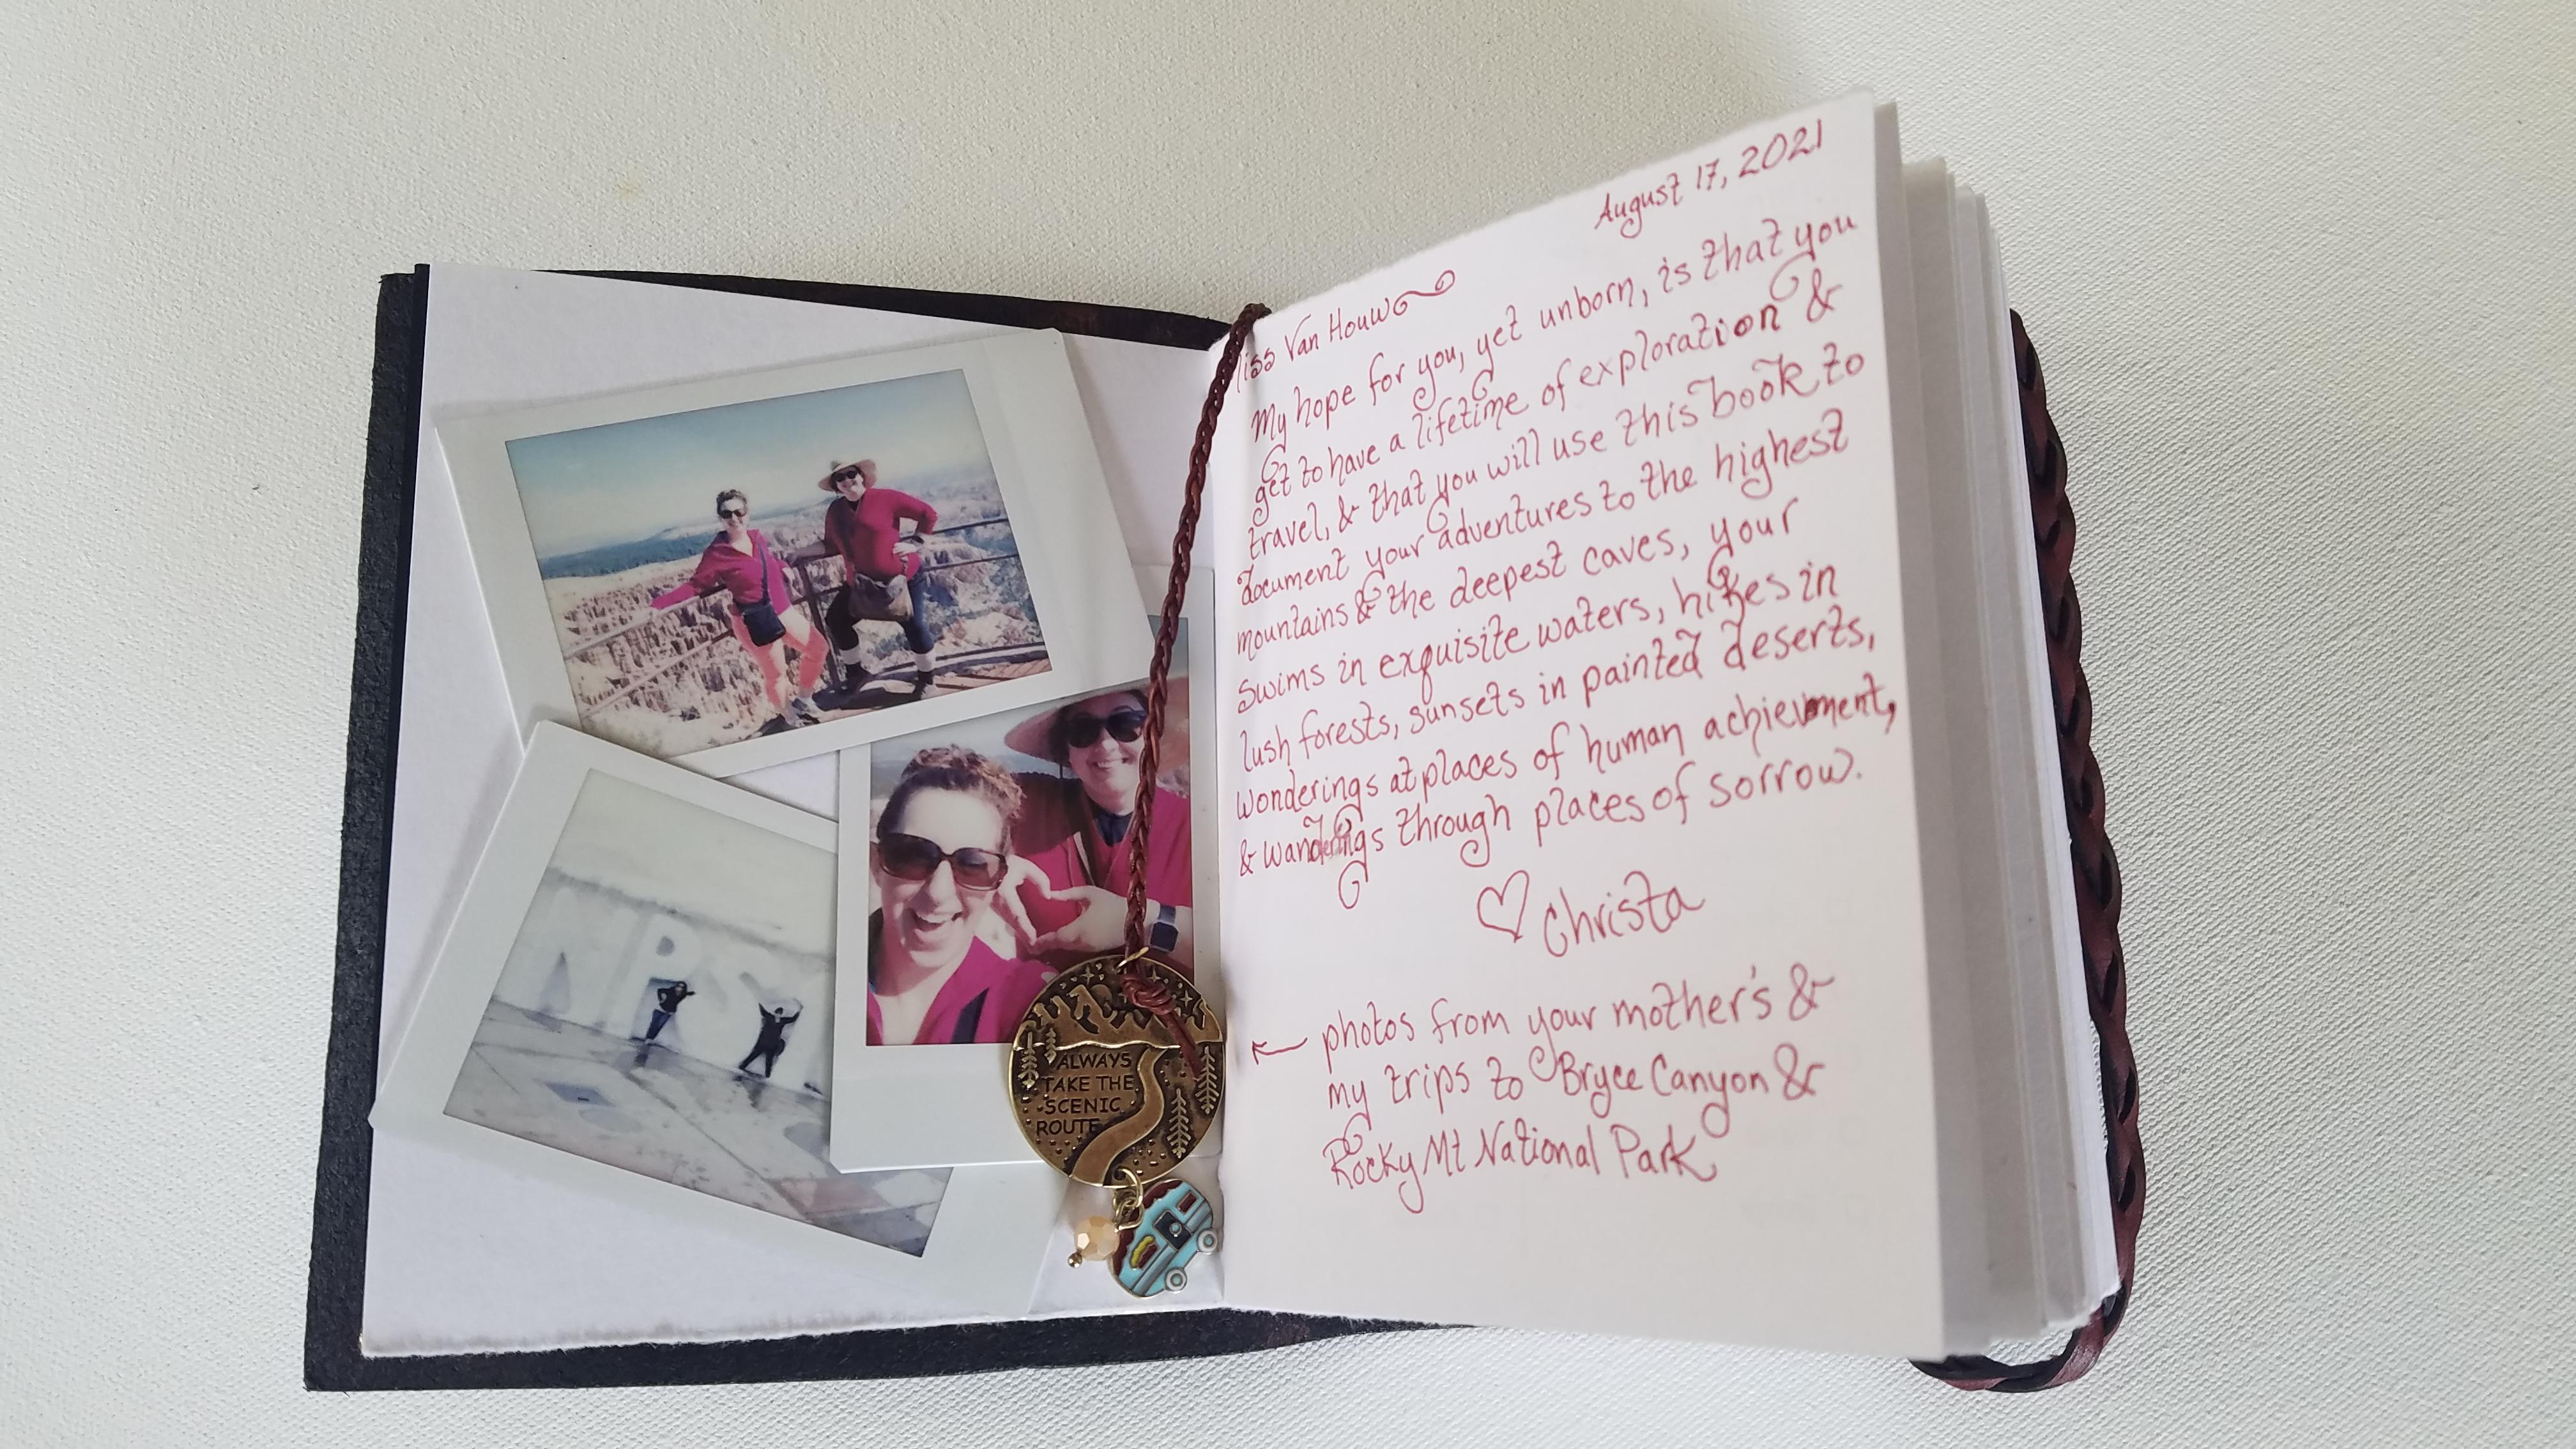 NPS
ALWAYS
TAKE THE
SCENIC
ROUTE
August 17, 2021
iss Van Houw
My hope for you, yet unborn, is that you
get to have a lifetime of exploration &
travel, & that you will use this book to
document your adventures to the highest
mountains & the deepest caves, your
swims in exquisite waters, hikes in
lush forests, sunsets in painted deserts,
wonderings at places of human achievment,
& wanderings through places of sorrow.
♡ Christa
← photos from your mother's &
my trips to Bryce Canyon &
Rocky Mt National Park